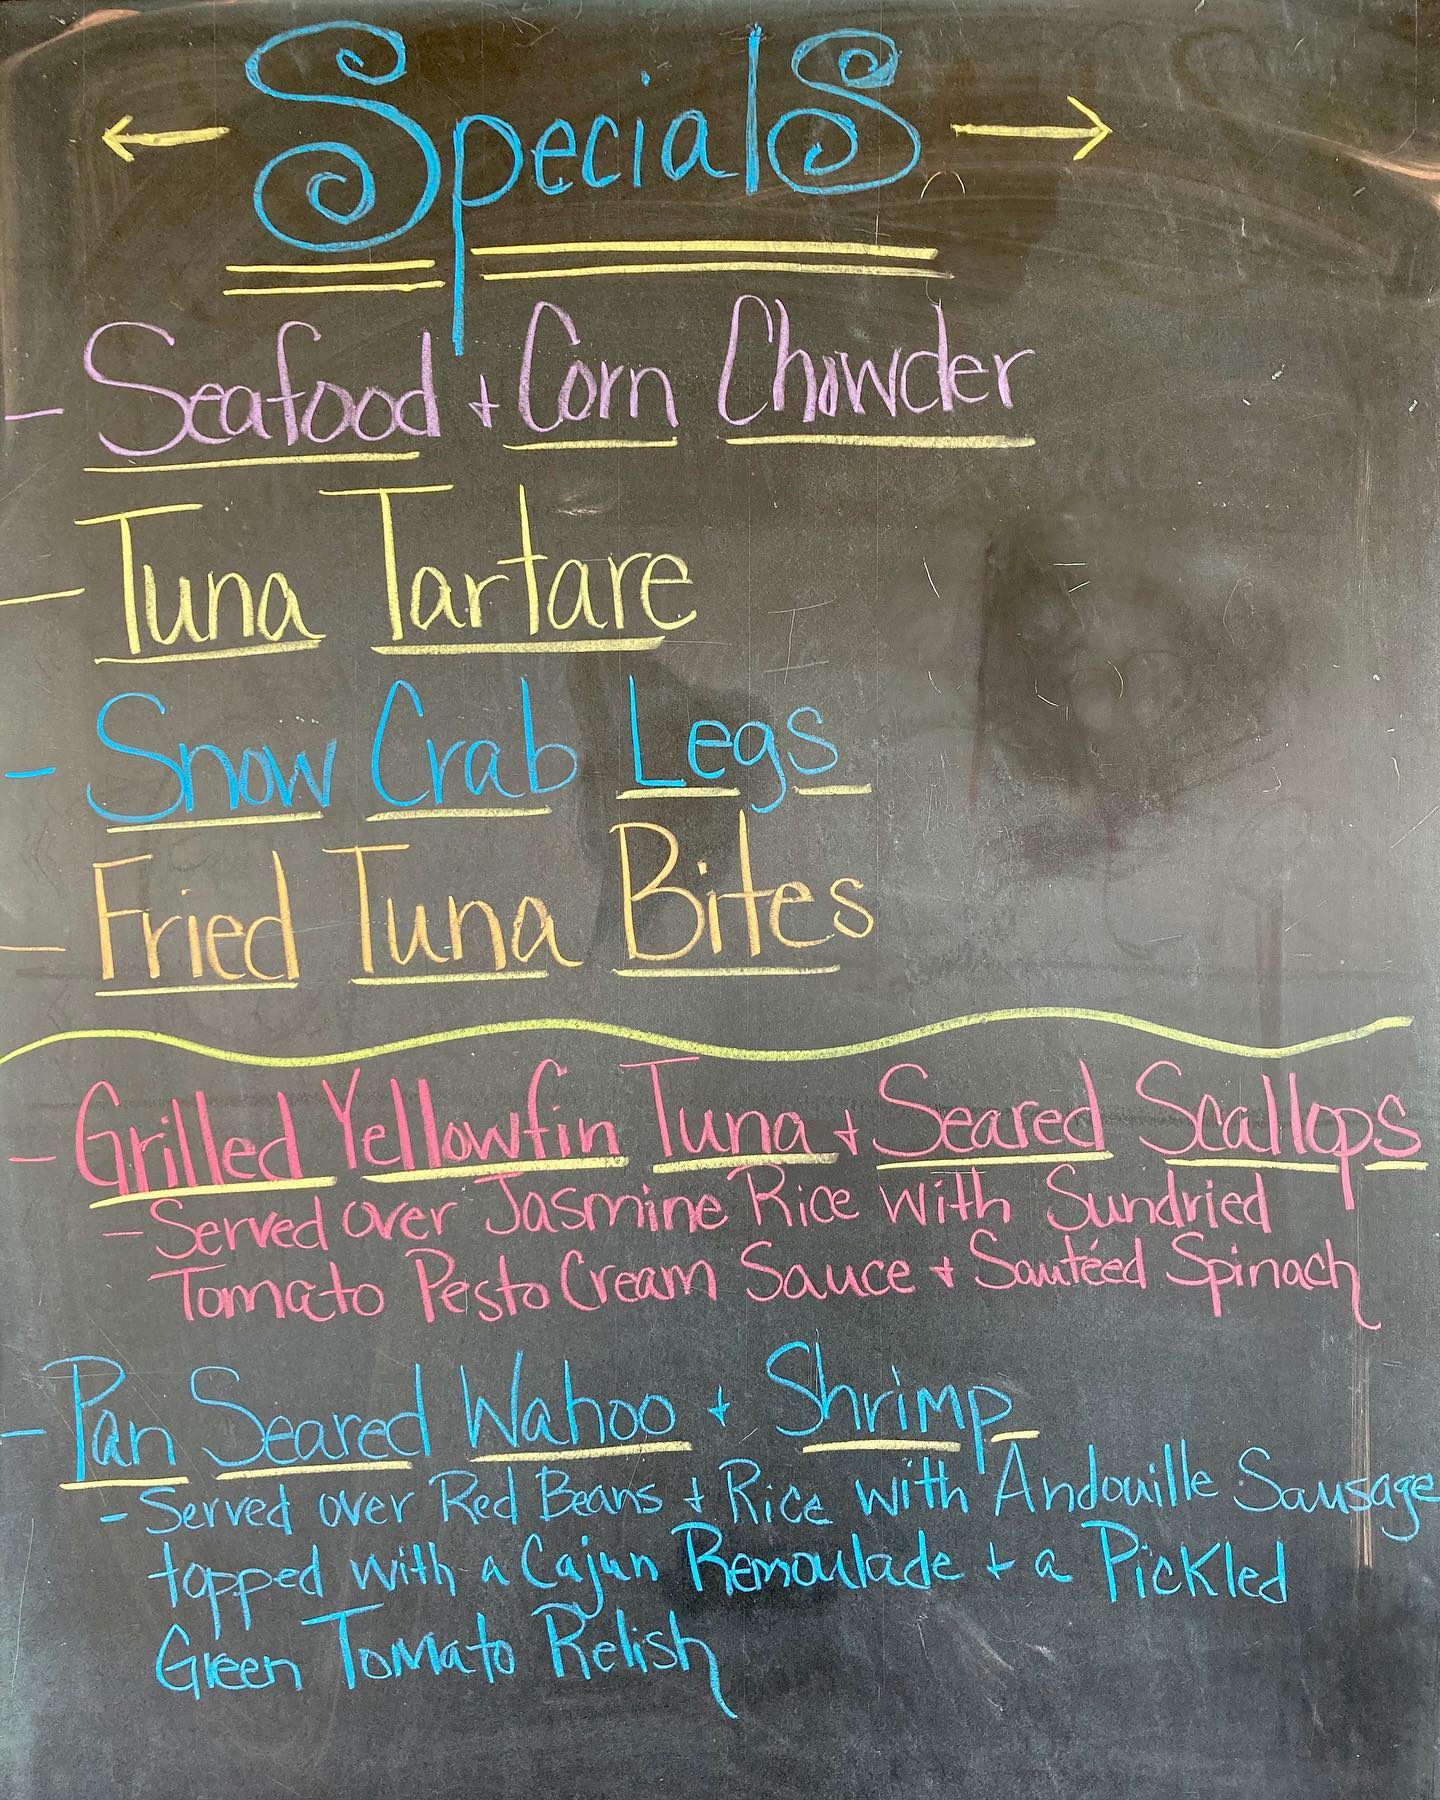 ← Specials →
- Seafood + Corn Chowder
- Tuna Tartare
- Snow Crab Legs
- Fried Tuna Bites
- Grilled Yellowfin Tuna + Seared Scallops
- Served over Jasmine Rice with Sundried
Tomato Pesto Cream Sauce + Sautéed Spinach
- Pan Seared Wahoo + Shrimp
- Served over Red Beans + Rice with Andouille Sausage
topped with a Cajun Remoulade + a Pickled
Green Tomato Relish